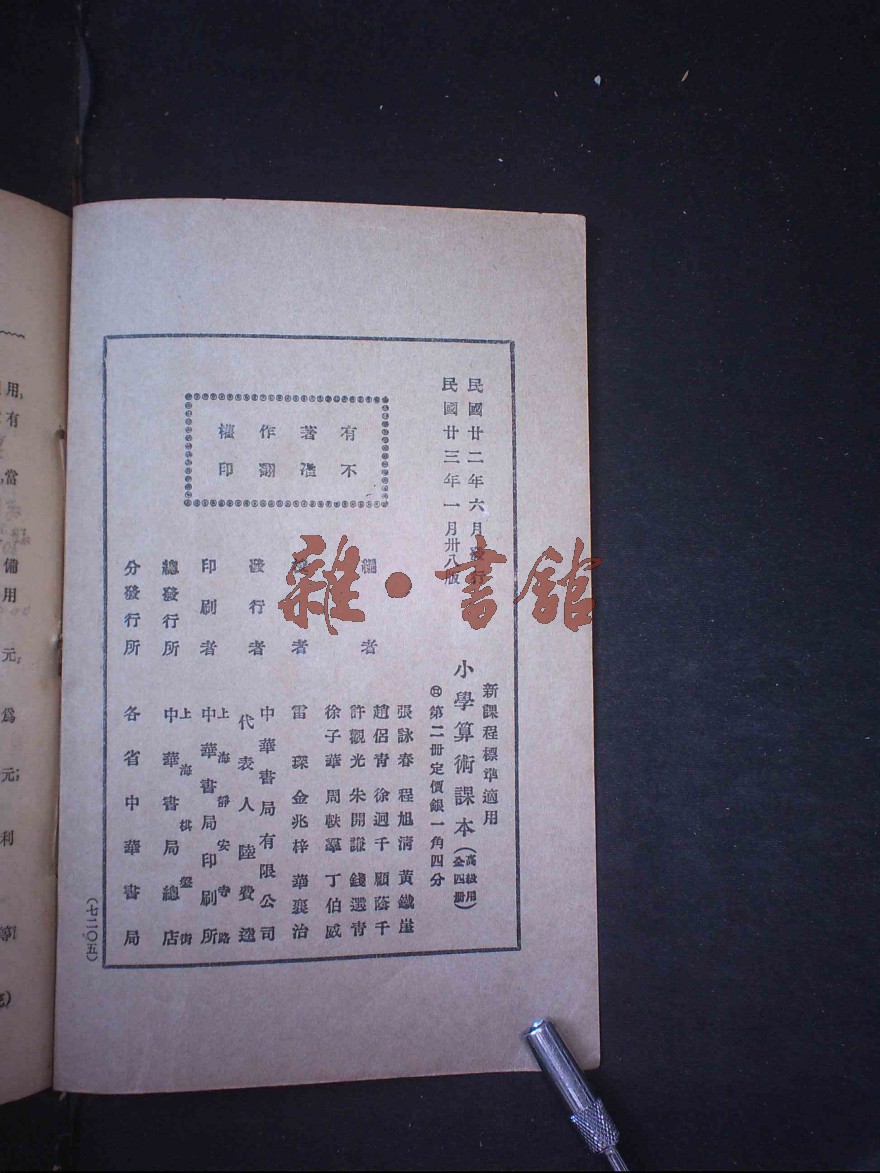 民國廿二年六月發行
民國廿三年一月卅八版
新課程標準適用
小學算術課本(高級用全四冊)
第二冊定價銀一角四分
有著作權
不准翻印
編者
張詠春 程旭清 黃鐵崖
趙侶青 徐迥千 顧蔭千
許觀光 朱開謙 錢選青
徐子華 周軼羣 丁伯威
者
雷琛 金兆梓 華襄治
發行者
中華書局有限公司
代表人 陸費逵
印刷者
上海靜安寺路
中華書局印刷所
總發行所
上海棋盤街
中華書局總店
分發行所
各省中華書局
(七二〇五)
雜·書館
用,
有
當
備
用
元,
爲
元;
利